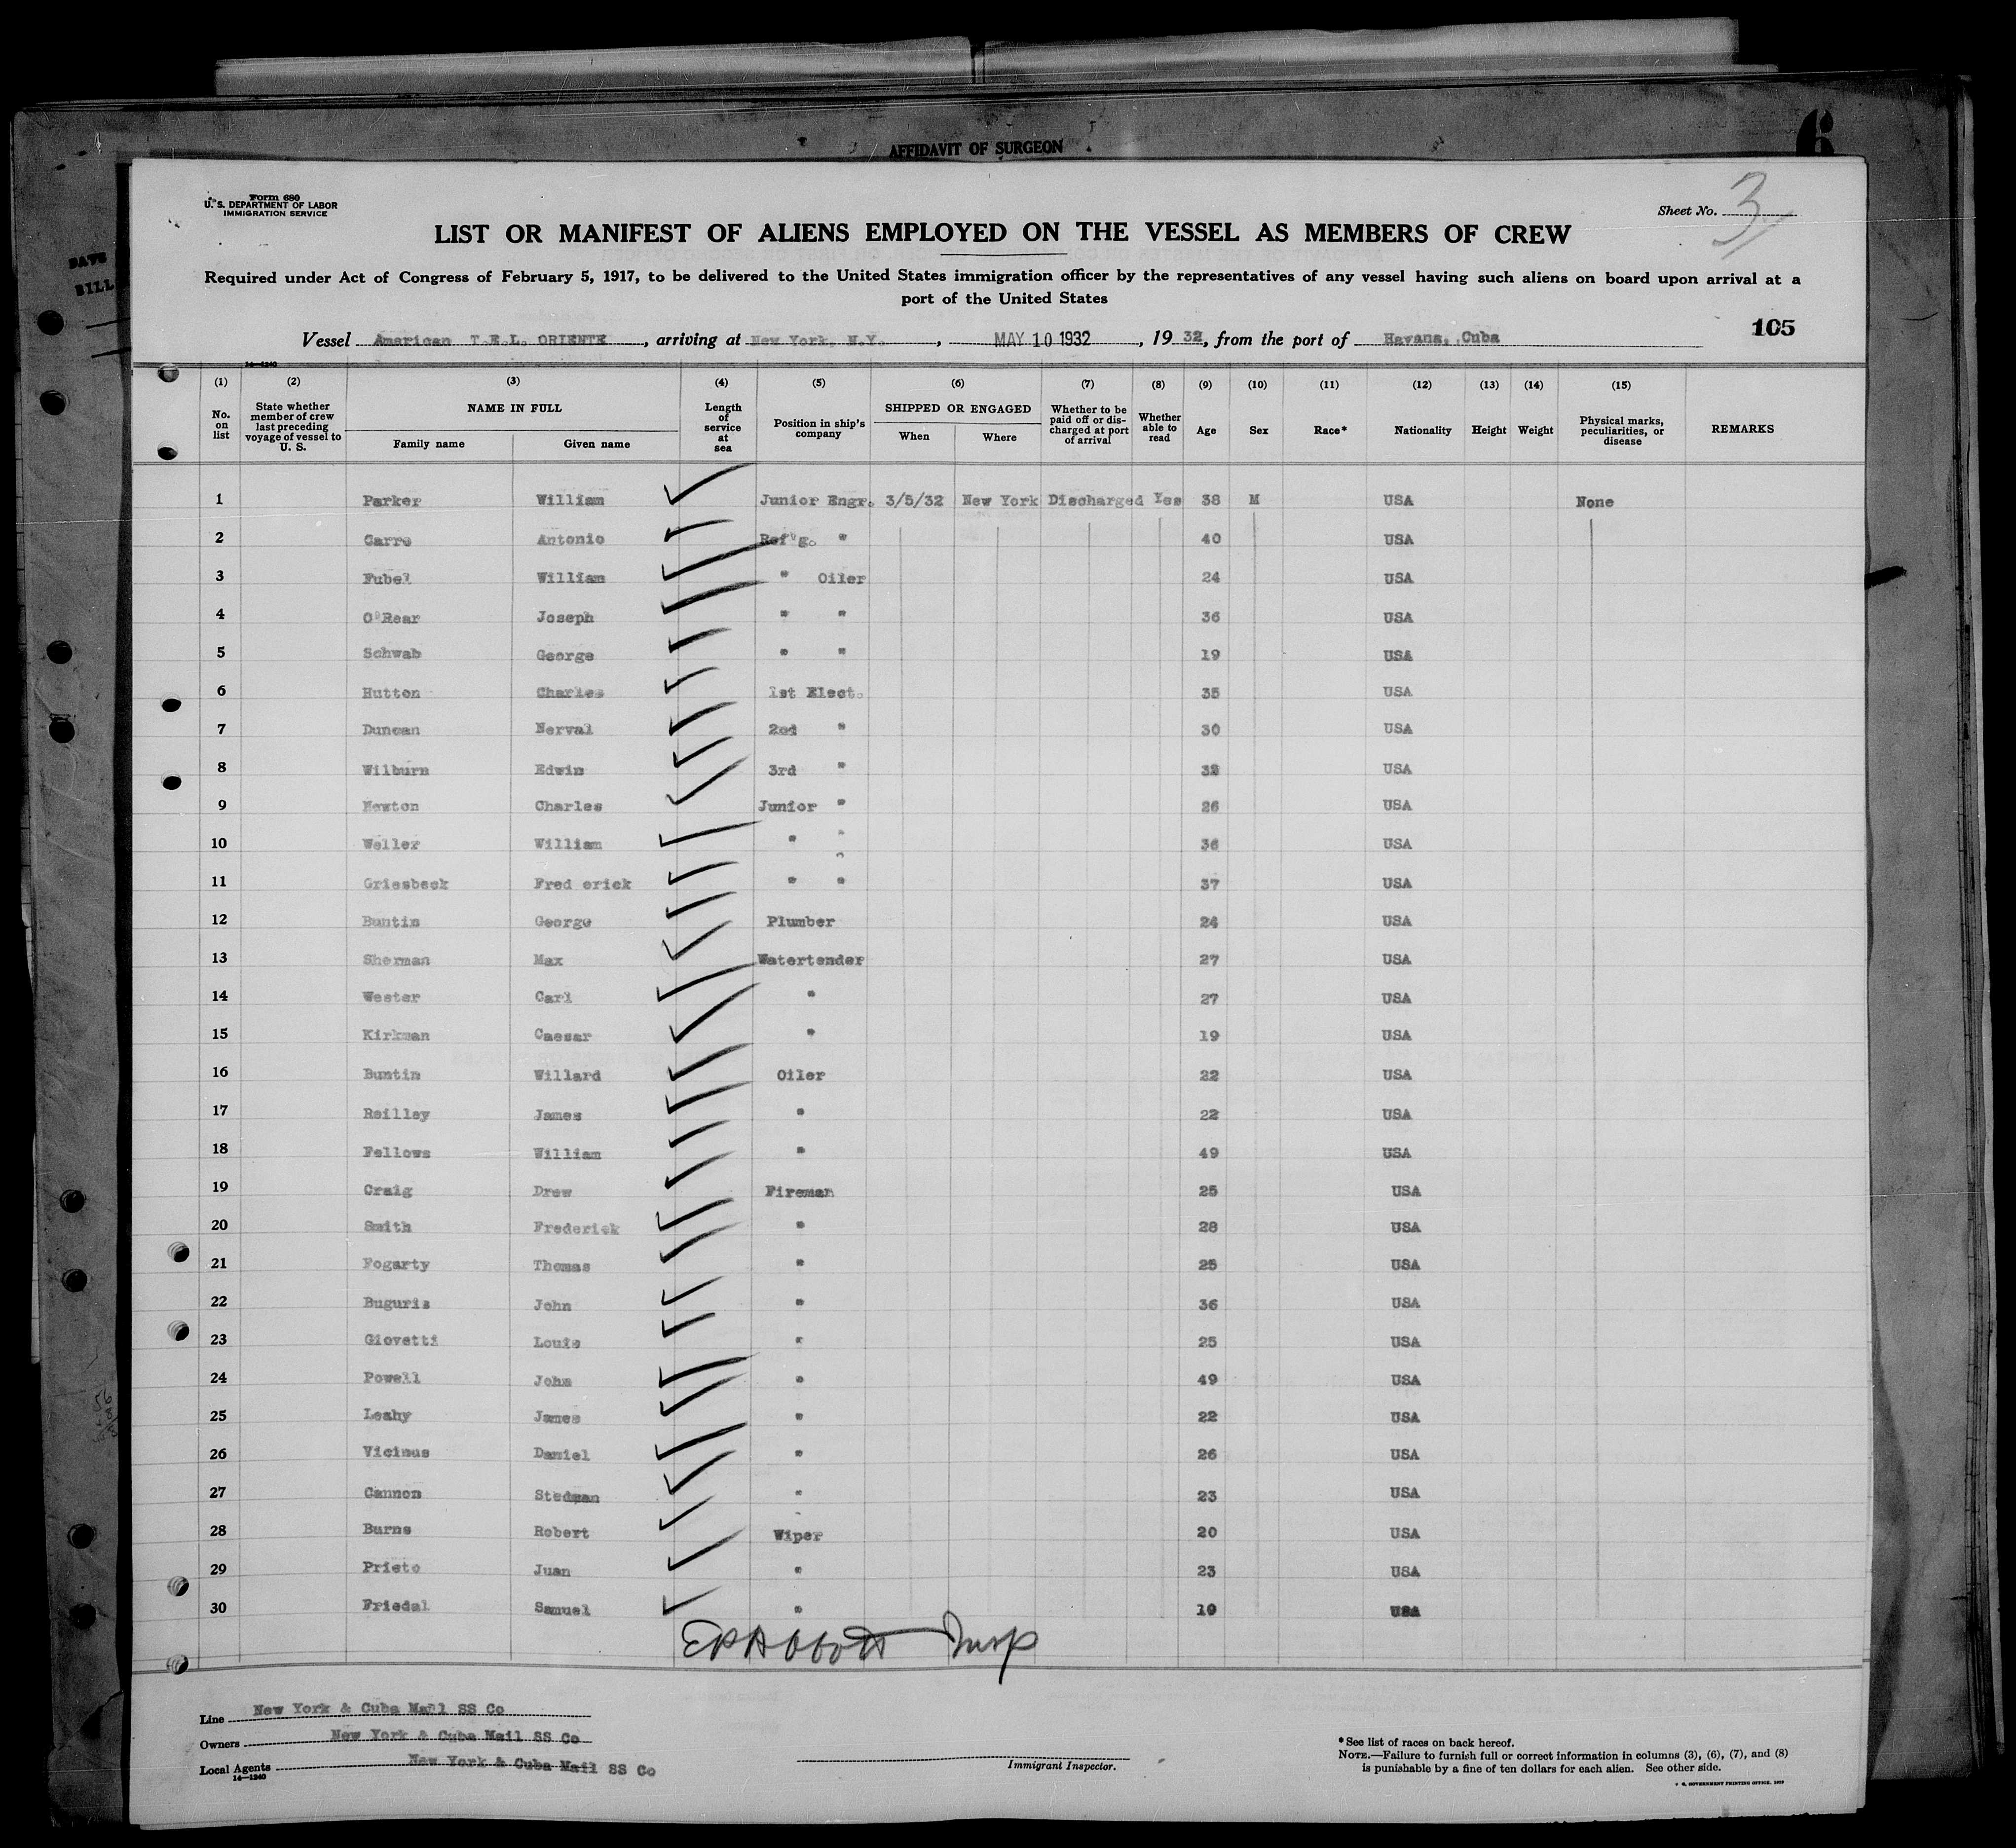 AFFIDAVIT OF SURGEON
6
DATE
BILL
Form 680
U. S. DEPARTMENT OF LABOR
IMMIGRATION SERVICE
Sheet No. 3
LIST OR MANIFEST OF ALIENS EMPLOYED ON THE VESSEL AS MEMBERS OF CREW
Required under Act of Congress of February 5, 1917, to be delivered to the United States immigration officer by the representatives of any vessel having such aliens on board upon arrival at a
port of the United States
105
Vessel American T.E.L. ORIENTE, arriving at New York, N.Y., MAY 10 1932, 1932, from the port of Havana, Cuba
14-1240
(1) (2) (3) (4) (5) (6) (7) (8) (9) (10) (11) (12) (13) (14) (15)
No. on list State whether member of crew last preceding voyage of vessel to U. S. NAME IN FULL Family name Given name Length of service at sea Position in ship's company SHIPPED OR ENGAGED When Where Whether to be paid off or discharged at port of arrival Whether able to read Age Sex Race* Nationality Height Weight Physical marks, peculiarities, or disease REMARKS
1 Parker William Junior Engr. 3/5/32 New York Discharged Yes 38 M USA None
2 Carro Antonio Ref'g. " 40 USA
3 Fubel William " Oiler 24 USA
4 O'Rear Joseph " " 36 USA
5 Schwab George " " 19 USA
6 Hutton Charles 1st Elect. 35 USA
7 Duncan Nerval 2nd " 30 USA
8 Wilburn Edwin 3rd " 32 USA
9 Newton Charles Junior " 26 USA
10 Weller William " " 36 USA
11 Griesbeck Fred erick " " 37 USA
12 Buntin George Plumber 24 USA
13 Sherman Max Watertender 27 USA
14 Wester Carl " 27 USA
15 Kirkman Caesar " 19 USA
16 Buntin Willard Oiler 22 USA
17 Reilley James " 22 USA
18 Fellows William " 49 USA
19 Craig Drew Fireman 25 USA
20 Smith Frederick " 28 USA
21 Fogarty Thomas " 25 USA
22 Buguris John " 36 USA
23 Giovetti Louis " 25 USA
24 Powell John " 49 USA
25 Leahy James " 22 USA
26 Vicinus Daniel " 26 USA
27 Cannon Stedman " 23 USA
28 Burns Robert Wiper 20 USA
29 Prieto Juan " 23 USA
30 Friedal Samuel " 19 USA
E P Abbott Insp
Line New York & Cuba Mail SS Co
Owners New York & Cuba Mail SS Co
Local Agents New York & Cuba Mail SS Co
14-1240
Immigrant Inspector.
*See list of races on back hereof.
NOTE.—Failure to furnish full or correct information in columns (3), (6), (7), and (8)
is punishable by a fine of ten dollars for each alien. See other side.